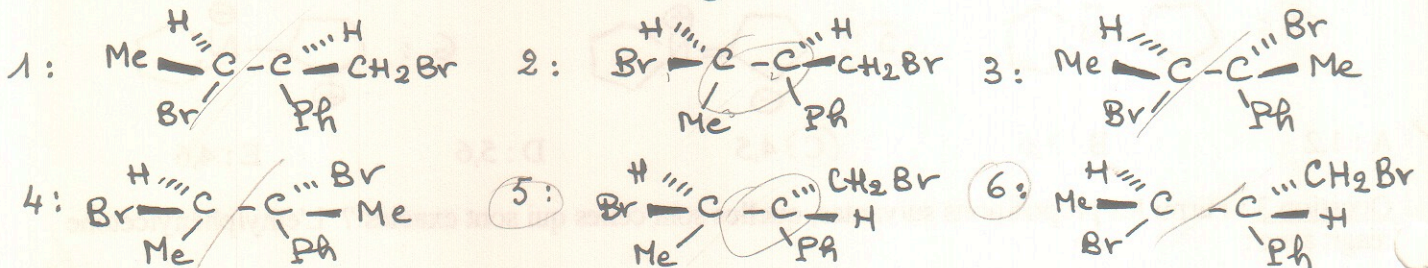 1: Me H C - C H CH2Br Br Ph
2: Br H C - C H CH2Br Me Ph
3: Me H C - C Br Me Br Ph
4: Br H C - C Br Me Me Ph
5: Br H C - C CH2Br H Me Ph
6: Me H C - C CH2Br H Br Ph